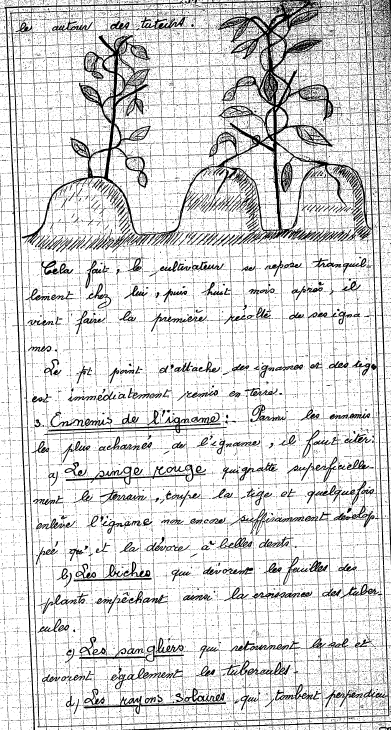 le autour des tuteurs.
Cela fait, le cultivateur se repose tranquil-
lement chez lui, puis huit mois après, il
vient faire la première récolte de ses igna-
mes.
Le pt point d'attache des ignames et des tiges
est immédiatement remis en terre.
3. Ennemis de l'igname : Parmi les ennemis
les plus acharnés de l'igname, il faut citer:
a) Le singe rouge qui gratte superficielle-
ment le terrain, coupe la tige et quelquefois
enlève l'igname non encore suffisamment dévelop-
pée et la dévore à belles dents.
b) Les biches qui dévorent les feuilles des
plants empêchant ainsi la croissance des tuber-
cules.
c) Les sangliers qui retournent le sol et
dévorent également les tubercules.
d) Les rayons solaires, qui tombent perpendicu